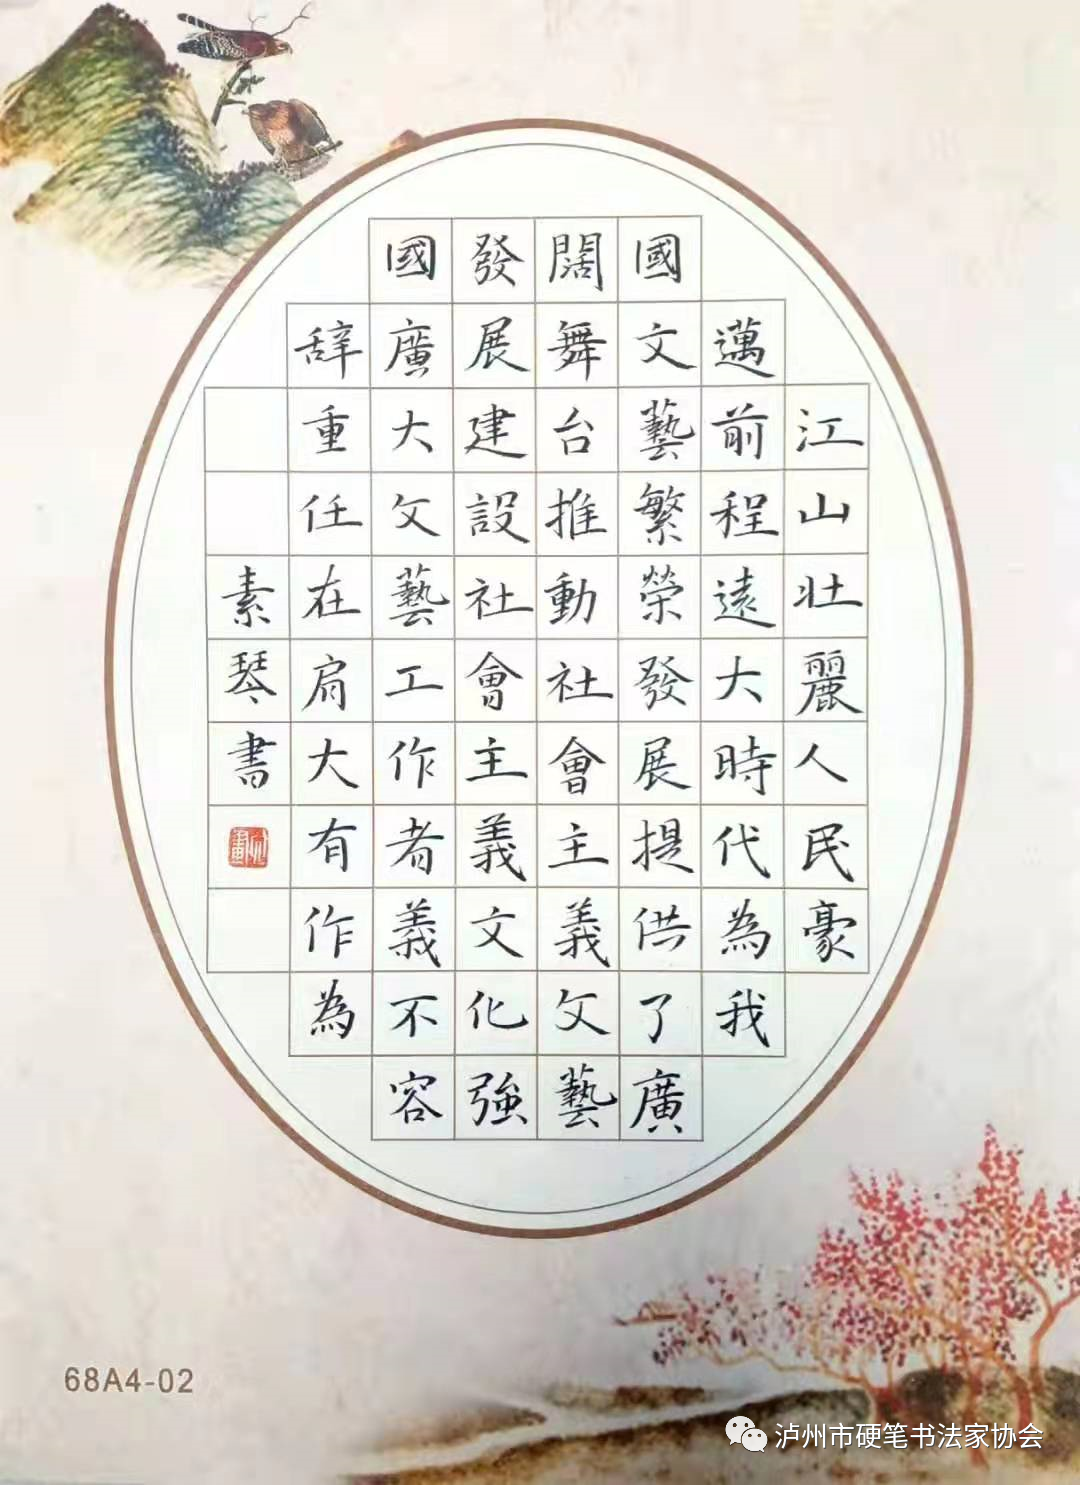 江山壯麗人民豪
邁前程遠大時代為我
國文藝繁榮發展提供了廣
闊舞台推動社會主義文藝
發展建設社會主義文化強
國廣大文藝工作者義不容
辞重任在肩大有作為
素琴書
68A4-02
泸州市硬笔书法家协会